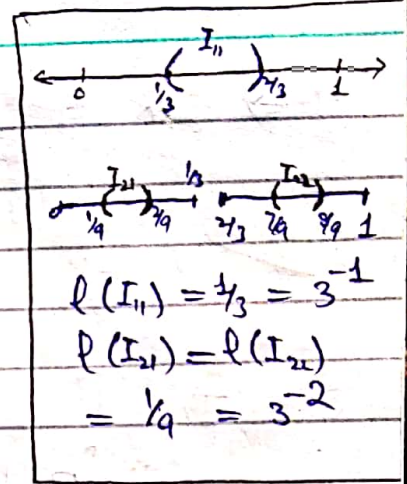 I₁₁
0 1/3 2/3 1
I₂₁ 1/3 I₂₂
0 1/9 2/9 2/3 7/9 8/9 1
ℓ(I₁₁) = 1/3 = 3⁻¹
ℓ(I₂₁) = ℓ(I₂₂)
= 1/9 = 3⁻²